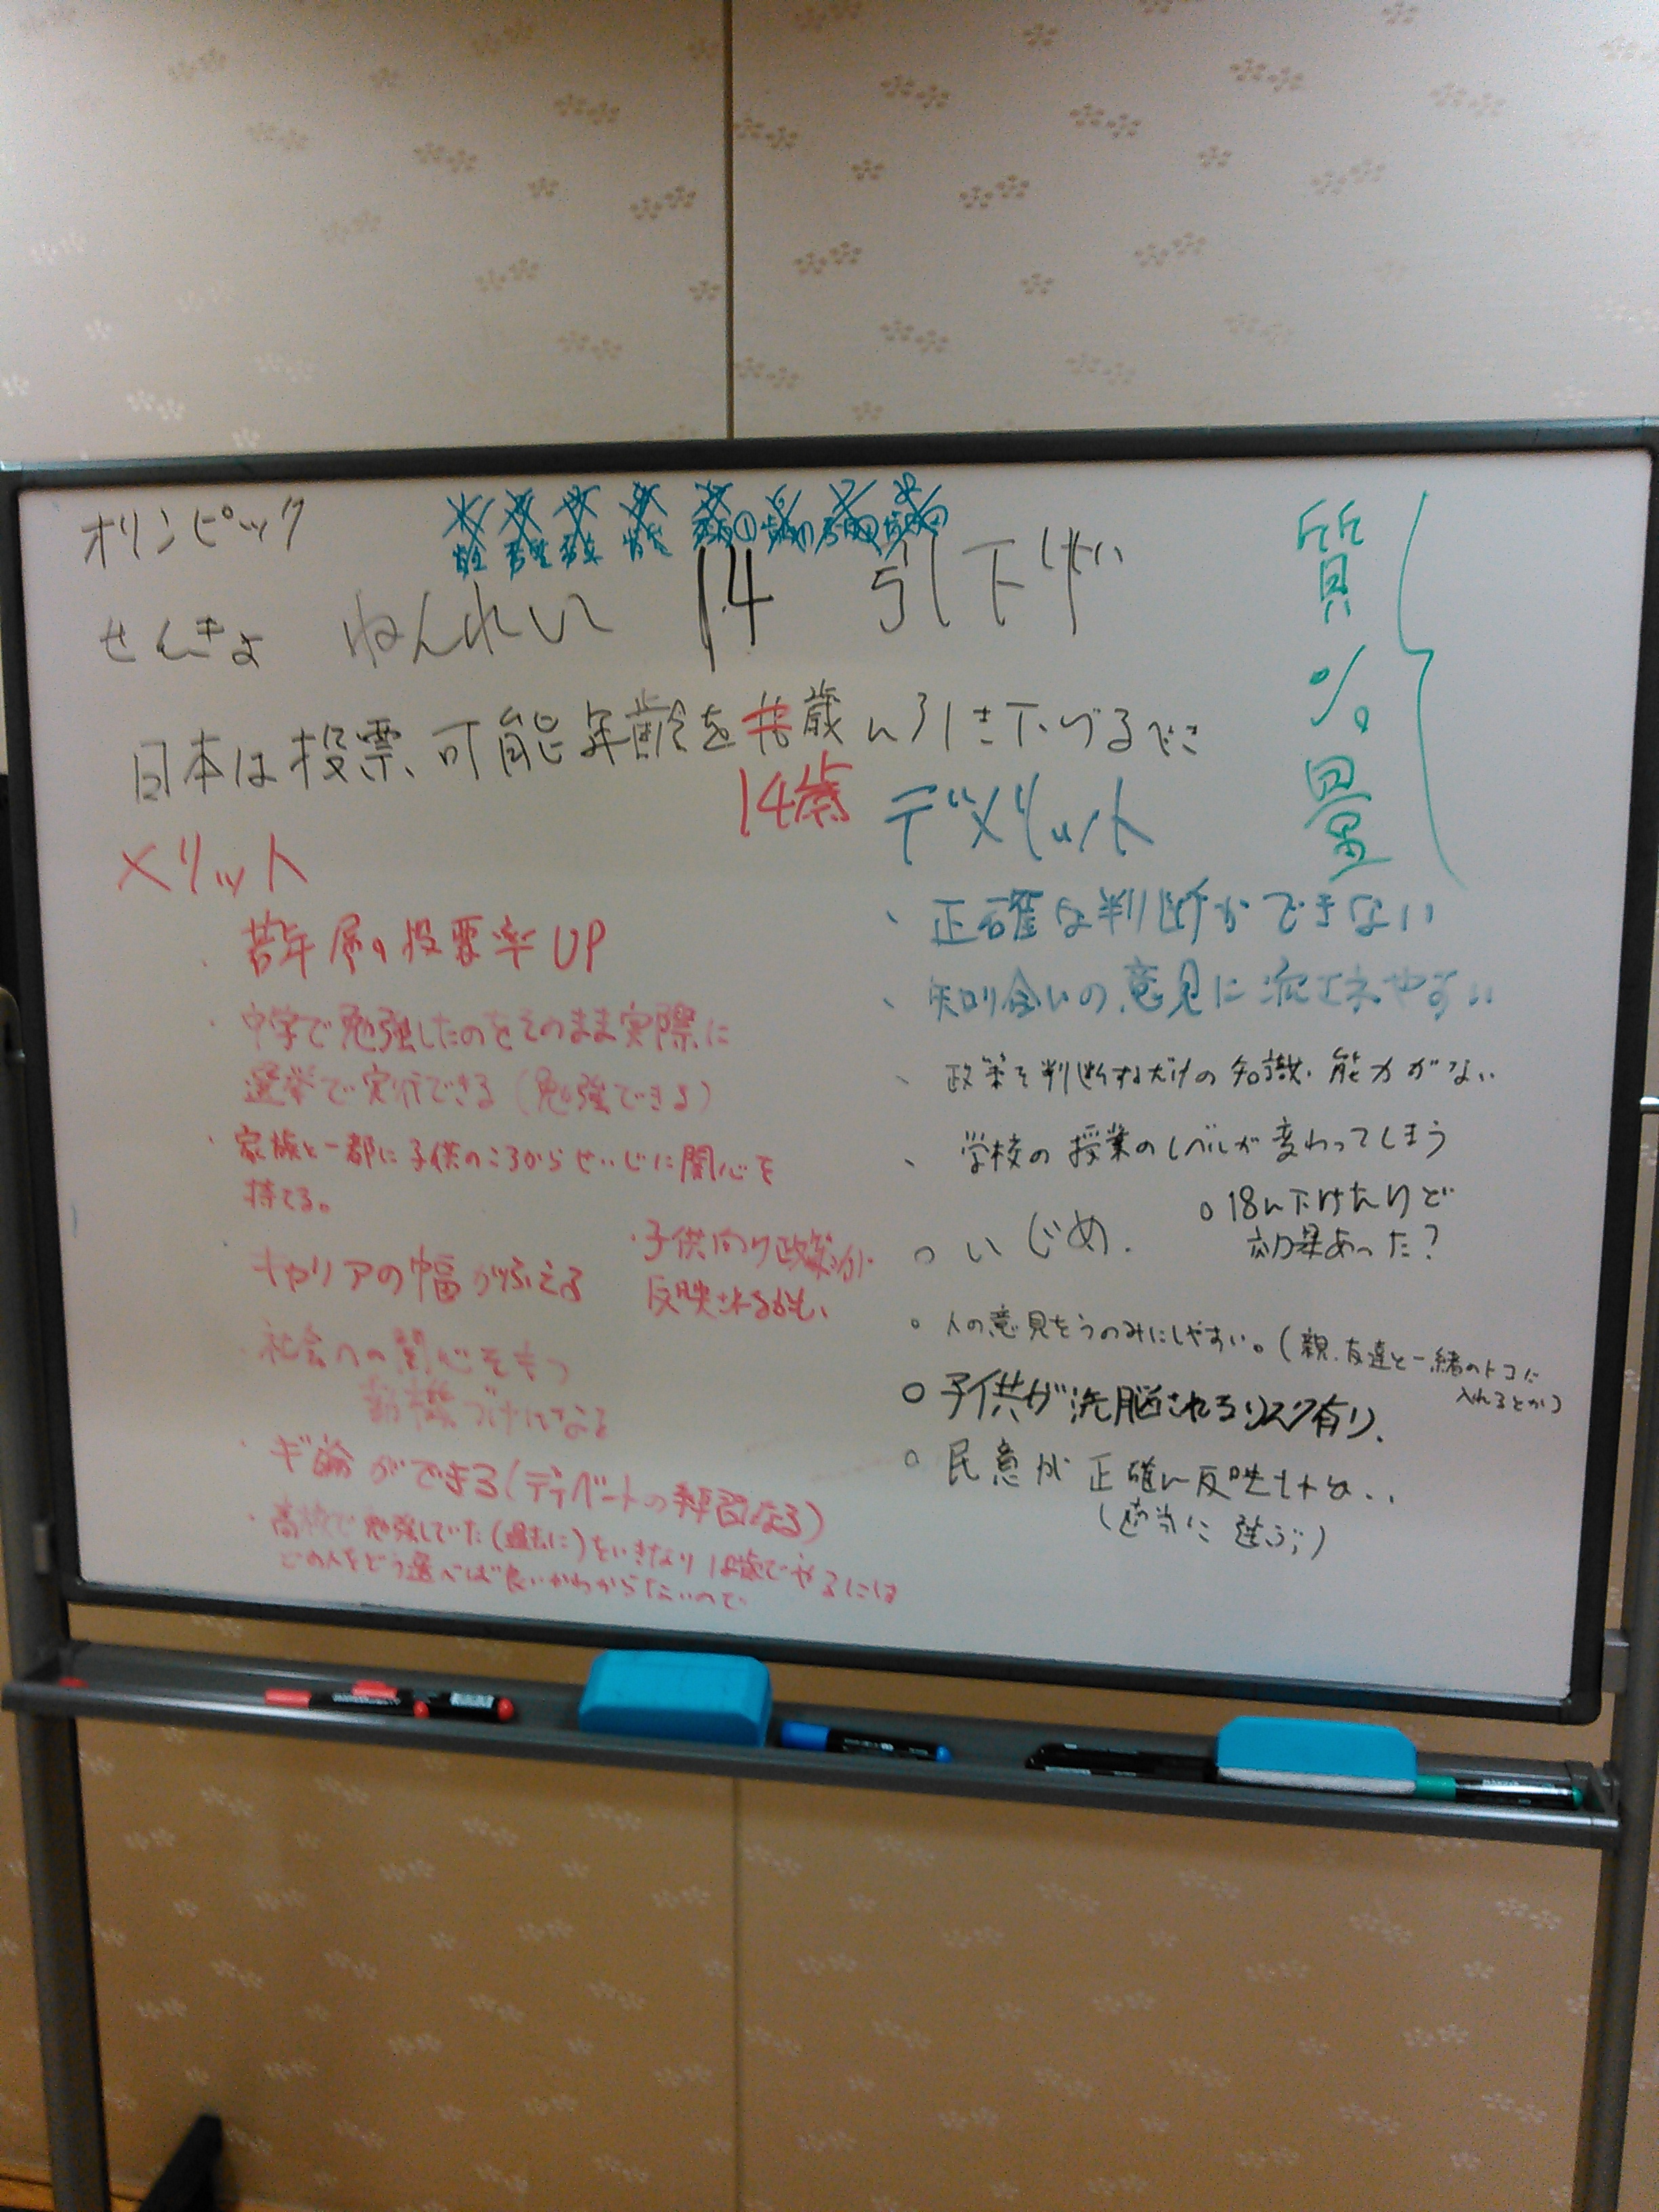 オリンピック
せんきょ ねんれい 14 引下げ
日本は投票可能年齢を歳に引き下げるべき
14歳
質
%。
量
メリット
・若年層の投票率UP
・中学で勉強したのをそのまま実際に
選挙で実行できる(勉強できる)
・家族と一都に子供のころからせいじに関心を
持てる。
・キャリアの幅がふえる
・子供向け政策が
反映されるかも、
・社会への関心をもつ
動機づけになる
・ギ論ができる(ディベートの練習になる)
・高校で勉強していた(過去に)をいきなり18歳でやるには
どの人をどう選べば良いかわからないので
デメリット
、正確な判断ができない
、知り合いの意見に流されやすい
、政策を判断するだけの知識、能力がない
、学校の授業のレベルが変わってしまう
○いじめ.
○18に下げたけど
効果あった?
○人の意見をうのみにしやすい。(親、友達と一緒のトコに
入れるとか)
○子供が洗脳されるリスク有り、
○民意が正確に反映されない..
(適当に選ぶ)